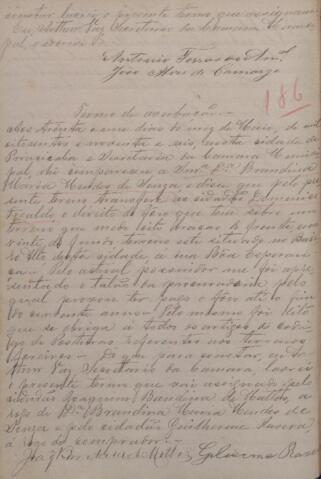 constar lavrei o presente termo que assignam
Eu Arthur Vaz Secretario da Camara Munici-
pal, o escrevi.
Antonio
José Alves de Camargo
186
Termo de
Aos trinta e um dias do mez de Maio, de mil
oitocentos e noventa e seis, nesta cidade de
Piracicaba e Secretaria da Camara Munici-
pal, ahi compareceu a Snrª Dª Brandina
Maria Mendes de Souza e disse que pelo pre-
sente termo transfere ao cidadão
o direito de foro que tem sobre um
terreno que mede oito braças de frente, com
vinte de fundo, terreno este situado no Bair-
ro Alto desta cidade, a rua Boa Esperan-
ça. Pelo actual possuidor me foi apre-
sentado o talão da procuradoria pelo
qual provou ter pago o foro até o fim
do corrente anno. Pelo mesmo foi dito
que se obriga a todos os artigos do Codi-
go de Posturas referentes aos terrenos
E para constar, eu Ar-
thur Vaz Secretario da Camara, lavrei
o presente termo que vai assignado pelo
cidadão Joaquim de Mattos, a
rogo de Dª Brandina Maria Mendes de
Souza e pelo cidadão Guilherme
a rogo do comprador.